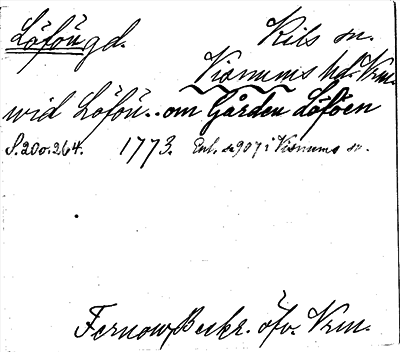 Löföngd. Kils sn.
Visnums hd. Vrm.
wid Löfön.. om Gården Löföen
S. 20 o. 264. 1773. Enl. s. 907 i Visnums sn.
Fernow, Beskr. öfv. Vrm.